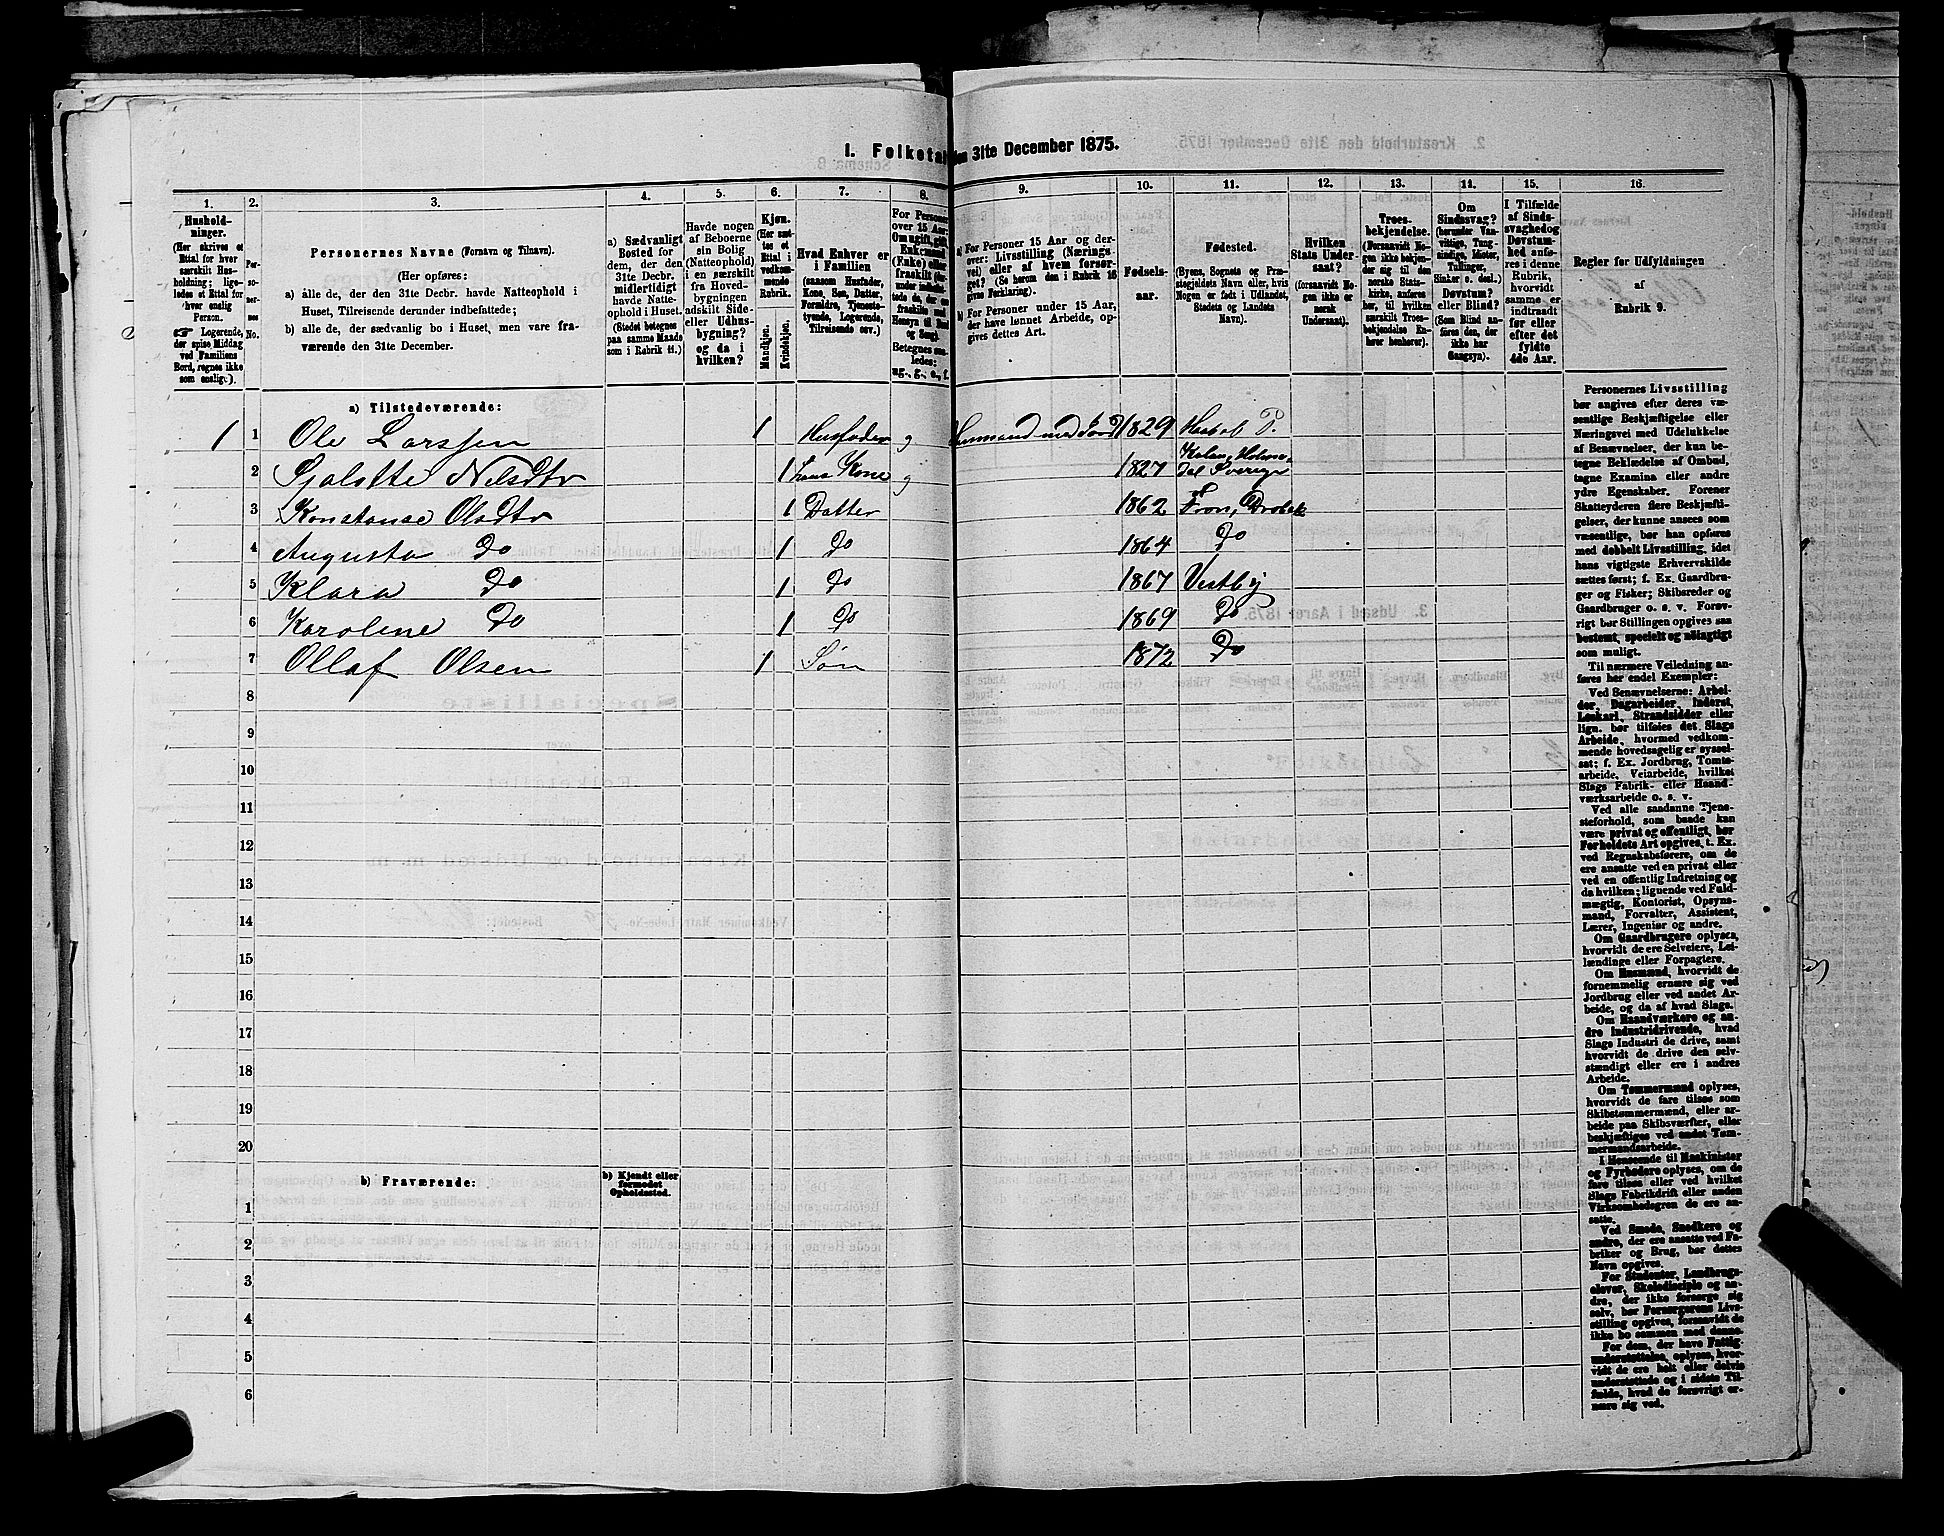 I. Folketal den 31te December 1875.
1. 2. 3. 4. 5. 6. 7. 8. 9. 10. 11. 12. 13. 14. 15. 16.
Hushold-
ninger.
(Her skrives et
Ettal for hver
særskilt Hus-
holdning; lige-
ledes et Ettal for
hver enslig
Person.
Logerende,
der spise Middag
ved Familiens
Bord, regnes ikke
som enslige.)
Per-
so-
ner-
nes
No.
Personernes Navne (Fornavn og Tilnavn).
(Her opføres:
a) alle de, der den 31te Decbr. havde Natteophold i
Huset, Tilreisende derunder indbefattede;
b) alle de, der sædvanlig bo i Huset, men vare fra-
værende den 31te December.
a) Sædvanligt
Bosted for
dem, der den
31te Decbr.
midlertidigt
havde Natte-
ophold i Huset.
(Stedet betegnes
paa samme Maade
som i Rubrik 11.)
Havde nogen
af Beboerne
sin Bolig
(Natteophold)
i en særskilt
fra Hoved-
bygningen
adskilt Side-
eller Udhus-
bygning?
og da i
hvilken?
Kjøn.
(Her sæt-
tes et
Ettal i
vedkom-
mende
Rubrik.
Mandkjøn.
Kvindekjøn.
Hvad Enhver er
i Familien
(saasom Husfader,
Kone, Søn, Datter,
Forældre, Tjeneste-
tyende, Logerende,
Tilreisende osv.)
For Personer
over 15 Aar:
Om ugift, gift,
Enkemand
(Enke) eller
fraskilt
Betegnes saa-
ledes:
ug., g., e., f.
a) For Personer 15 Aar og der-
over: Livsstilling (Nærings-
vei) eller af hvem forsør-
get? (Se herom den i Rubrik 16
givne Forklaring).
b) For Personer under 15 Aar,
der have lønnet Arbeide, op-
gives dettes Art.
Fødsels-
aar.
Fødested.
(Byens, Sognets og Præ-
stegjeldets Navn, eller, hvis
Nogen er født i Udlandet,
Stedets og Landets
Navn).
Hvilken
Stats Under-
saat?
(forsaavidt No-
gen ikke er
norsk
Undersaat).
Troes-
bekjendelse.
(Forsaavidt No-
gen ikke bekjen-
der sig til den
norske Stats-
kirke, anføres
her, til hvilken
særskilt Troes-
bekjendelse En-
hver henhører).
Om
Sindssvag?
(herunder Van-
vittige, Tung-
sindige, Idioter,
Tullinger,
Sinker o. desl.)
Døvstum?
eller Blind?
(Som Blind an-
føres den, der
ikke har
Gangsyn).
I Tilfælde
af Sinds-
svaghed og
Døvstum-
hed anfø-
res i denne
Rubrik,
hvorvidt
samme er
indtraadt
før eller
efter det
fyldte
4de Aar.
Regler for Udfyldningen
af
Rubrik 9.
a) Tilstedeværende:
1 1 Ole Larssen 1 Husfader g Husmand med Jord 1829 P.
2 Sjalotte Nilsdtr 1 hans Kone g 1827
3 Konstanse Olsdtr 1 Datter 1862 Fron, Drøbak
4 Augusta Do 1 Do 1864 Do
5 Klara Do 1 Do 1867 Vestby
6 Karoline Do 1 Do 1869 Do
7 Ollaf Olsen 1 Søn 1872 Do
8
9
10
11
12
13
14
15
16
17
18
19
20
b) Fraværende:
b) Kjendt eller
formodet
Opholdssted.
1
2
3
4
5
6
Personernes Livsstilling
bør angives efter deres væ-
sentlige Beskjæftigelse eller
Næringsvei med Udelukkelse
af Benævnelser, der kun be-
tegne Beklædelse af Ombud,
tagne Examina eller andre
ydre Egenskaber. Forener
Skatteyderen flere Beskjæfti-
gelser, der kunne ansees som
væsentlige, bør han opføres
med dobbelt Livsstilling, idet
hans vigtigste Erhvervskilde
sættes først; f. Ex. Gaardbru-
ger og Fisker; Skibsreder og
Gaardbruger o. s. v. Forøv-
rigt bør Stillingen opgives saa
bestemt, specielt og nøiagtigt
som muligt.
Til nærmere Veiledning an-
føres her endel Exempler:
Ved Benævnelserne: Arbei-
der, Dagarbeider, Inderst,
Løskarl, Strandsidder eller
lign. bør tilføies det Slags
Arbeide, hvormed vedkom-
mende hovedsagelig er syssel-
sat; f. Ex. Jordbrug, Tomte-
arbeide, Veiarbeide, hvilket
Slags Fabrik- eller Haand-
værksarbeide o. s. v.
Ved alle saadanne Tjene-
steforhold, som baade kan
være privat og offentligt, bør
Forholdets Art opgives, t. Ex.
ved Regnskabsførere, om de
ere ansatte ved en privat eller
ved en offentlig Indretning og
da hvilken; lignende ved Fuld-
mægtig, Kontorist, Opsyns-
mand, Forvalter, Assistent,
Lærer, Ingeniør og andre.
Om Gaardbrugere oplyses,
hvorvidt de ere Selveiere, Lei-
lændinge eller Forpagtere.
Om Husmænd, hvorvidt de
fornemmelig ernære sig ved
Jordbrug eller ved andet Ar-
beide, og da af hvad Slags.
Om Haandværkere og an-
dre Industridrivende, hvad
Slags Industri de drive, samt
hvorvidt de drive den selv-
stændigt eller ere i andres
Arbeide.
Om Tømmermænd oplyses,
hvorvidt de fare tilsøs som
Skibstømmermænd, eller ar-
beide paa Skibsværfter, eller
beskjæftiges ved andet Tøm-
mermandsarbeide.
I Henseende til Maskinister
og Fyrbødere oplyses, om de
fare tilsøs eller ved hvilket
Slags Fabrikdrift eller anden
Virksomhedsgren de ere an-
satte.
Ved Smede, Snedkere og
andre, der ere ansatte ved Fa-
briker og Brug, bør dettes
Navn opgives.
For Studenter, Landbrugs-
elever, Skoledisciple og an-
dre, der ikke forsørge sig
selv, bør Forsørgerens Livs-
stilling opgives, forsaavidt de
ikke bo sammen med denne.
For dem, der have Fattig-
understøttelse, oplyses, hvor-
vidt de ere helt eller delvis
understøttede og i sidste Til-
fælde, hvad de forøvrigt er-
nære sig ved.